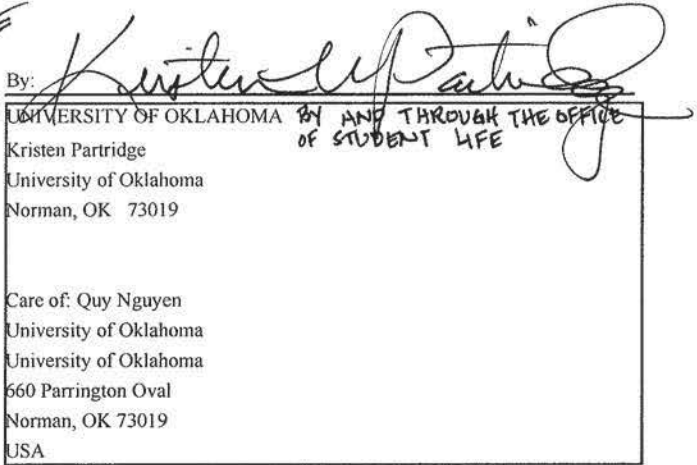 By: Kristen N Partridge
UNIVERSITY OF OKLAHOMA BY AND THROUGH THE OFFICE
OF STUDENT LIFE
Kristen Partridge
University of Oklahoma
Norman, OK 73019
Care of: Quy Nguyen
University of Oklahoma
University of Oklahoma
660 Parrington Oval
Norman, OK 73019
USA